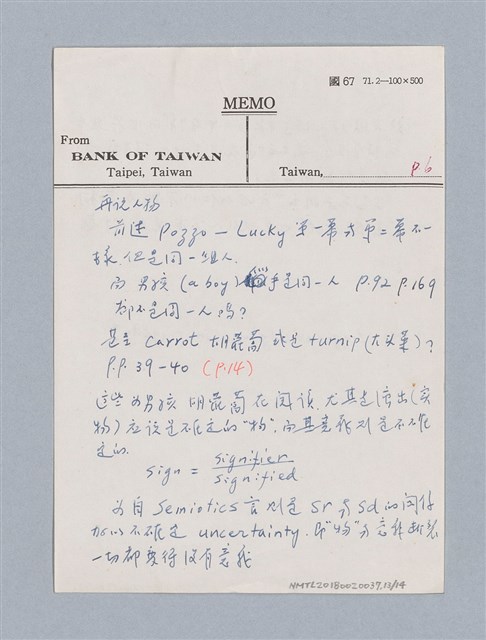 國 67 71.2—100×500
MEMO
From
BANK OF TAIWAN
Taipei, Taiwan
Taiwan,
p6
再说人物
前述 Pozzo — Lucky 第一幕与第二幕不一
樣,但是同一组人.
而 男孩 (a boy) 乎是同一人 p.92 p.169
却不是同一人嗎?
是否 carrot 胡蘿蔔 或是 turnip (大头菜)?
P.P. 39-40 (p.14)
這些 男孩 胡蘿蔔 在阅读,尤其是演出(实
物)应该是不確定的"物",而其意
定的.
sign = signifier
signified
Semiotics 言 則是 sr 与 sd 的関係
加以不確定 uncertainty. 即"物"与意
一切都变得沒有意義
NMTL20180020037,13/14